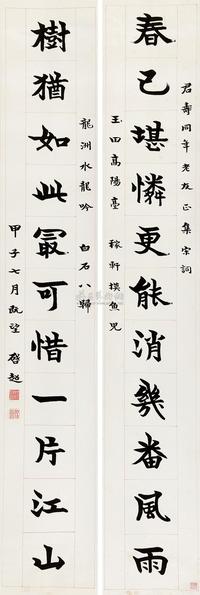 君壽同年老友正集宋詞
春已堪憐更能消幾番風雨
玉田高陽臺 稼軒摸魚兒
龍洲水龍吟 白石八歸
樹猶如此最可惜一片江山
甲子七月既望 啓超